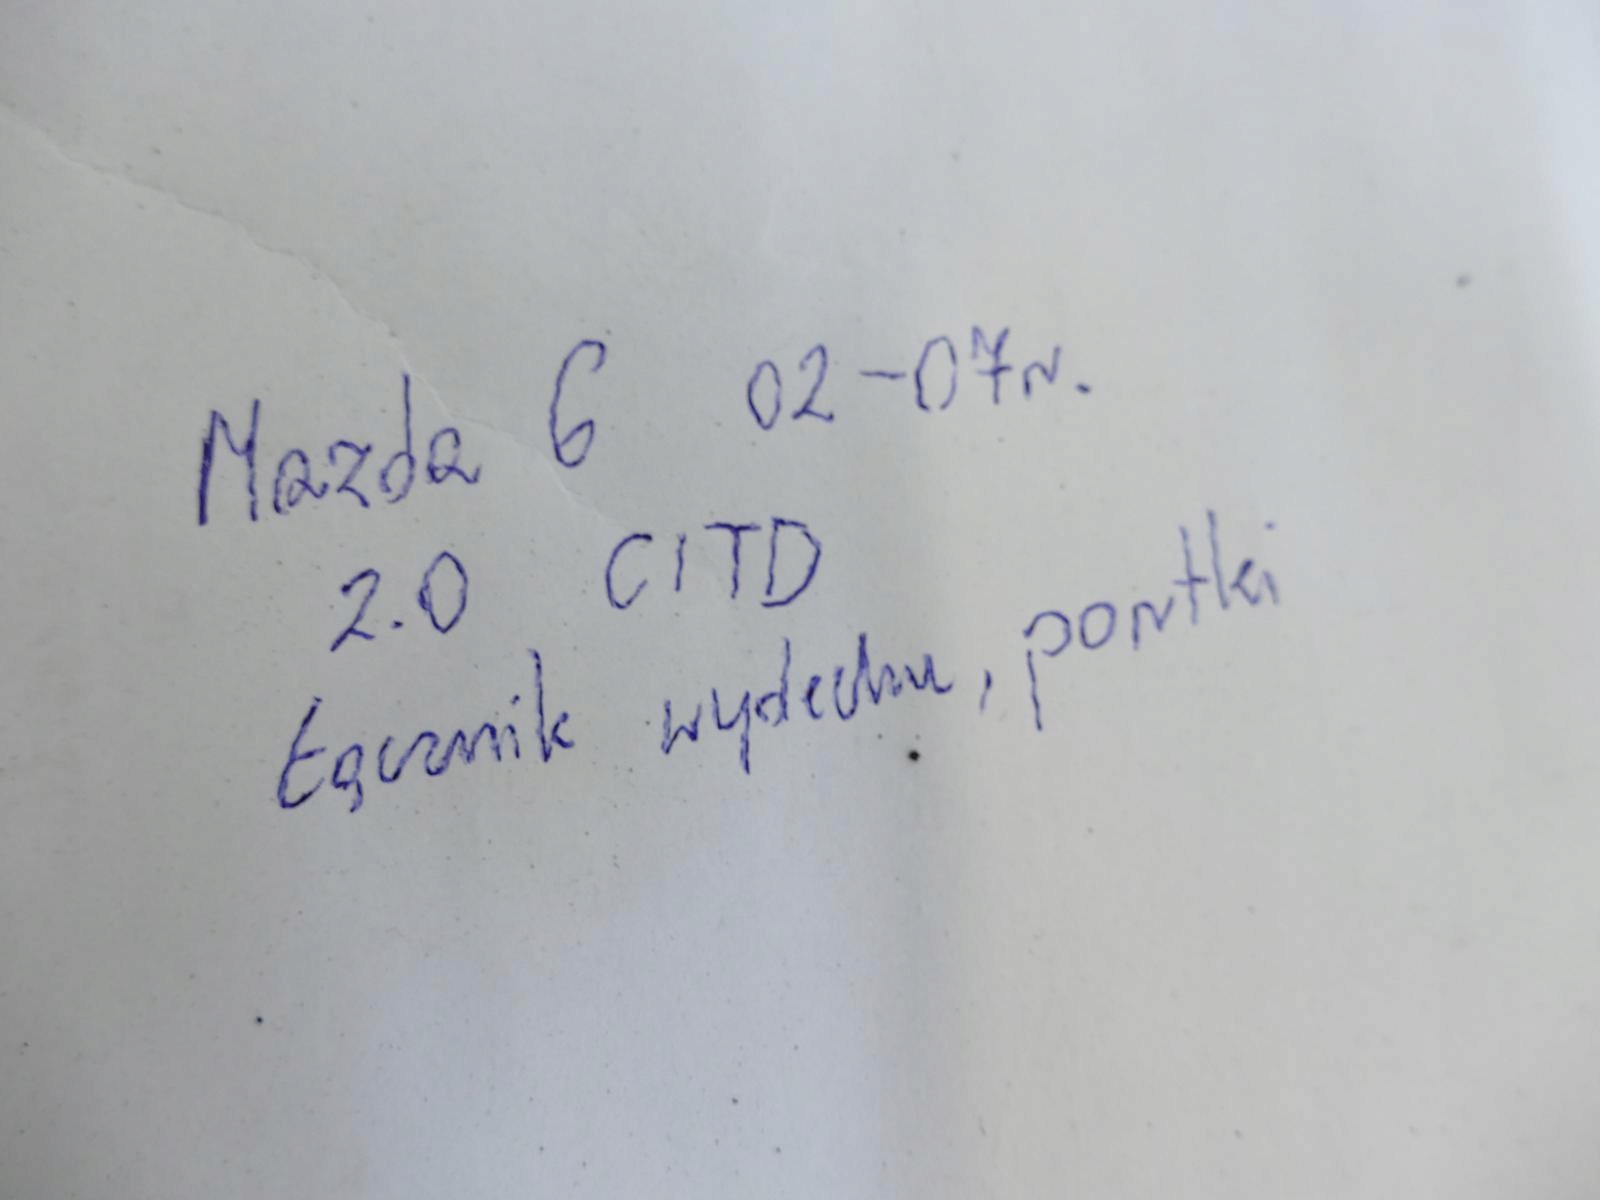 Mazda 6 02-07r.
2.0 CITD
Łącznik wydechu, portki